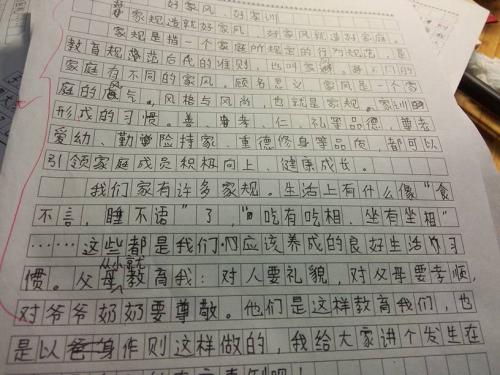 好家风 好家训
家规造就好家风，好家风就造好家庭。
家规是指一个家庭所规定的行为规范，是
教育规范后代的准则，也叫家
家庭有不同的家风。顾名思义，家风是一个家
庭的风气，风格与风尚，也就是家规、家训的
形成的习惯。善、孝、仁、礼等品德，尊老
爱幼、勤俭持家、重德修身等品质，都可以
引领家庭成员积极向上、健康成长。
我们家有许多家规。生活上有什么像“食
不言，睡不语”了，“吃有吃相，坐有坐相”
……这些都是我们应该养成的良好生活习
惯。父母从小就教育我：对人要礼貌，对父母要孝顺，
对爷爷奶奶要尊敬。他们是这样教育我们，也
是以身作则这样做的，我给大家讲个发生在